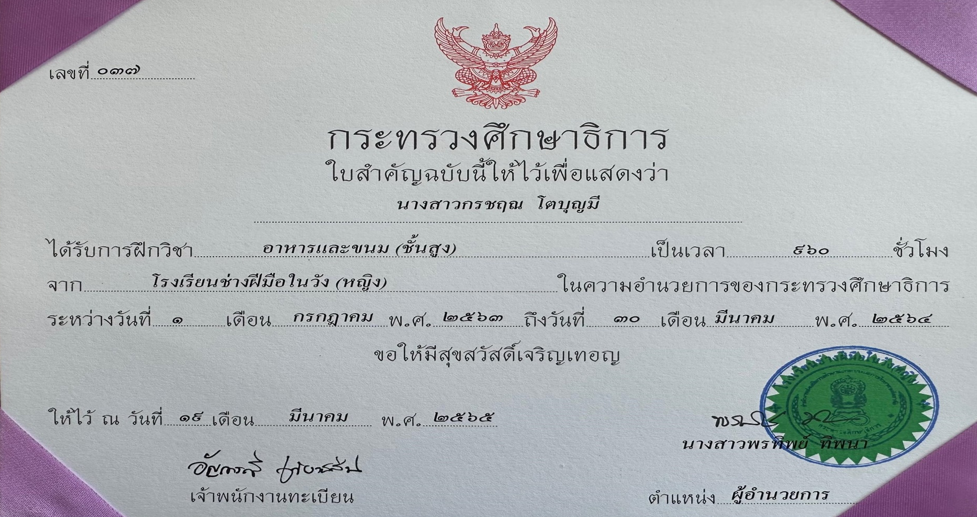 เลขที่ ๐๓๗
กระทรวงศึกษาธิการ
ใบสำคัญฉบับนี้ให้ไว้เพื่อแสดงว่า
นางสาวกรชฤณ โตบุญมี
ได้รับการฝึกวิชา อาหารและขนม (ชั้นสูง) เป็นเวลา ๙๖๐ ชั่วโมง
จาก โรงเรียนช่างฝีมือในวัง (หญิง) ในความอำนวยการของกระทรวงศึกษาธิการ
ระหว่างวันที่ ๑ เดือน กรกฎาคม พ.ศ. ๒๕๖๓ ถึงวันที่ ๓๐ เดือน มีนาคม พ.ศ. ๒๕๖๔
ขอให้มีสุขสวัสดิ์เจริญเทอญ
ให้ไว้ ณ วันที่ ๑๙ เดือน มีนาคม พ.ศ. ๒๕๖๕
นางสาวพรทิพย์ ทิพนา
เจ้าพนักงานทะเบียน
ตำแหน่ง ผู้อำนวยการ